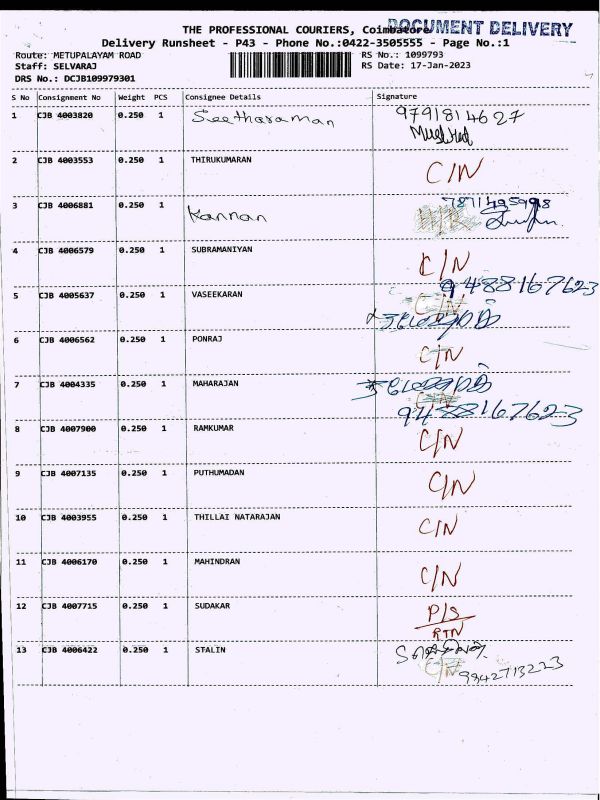 DOCUMENT DELIVERY
THE PROFESSIONAL COURIERS, Coimbatore
Delivery Runsheet - P43 - Phone No.:0422-3505555 - Page No.:1
Route: METUPALAYAM ROAD
RS No.: 1099793
Staff: SELVARAJ
RS Date: 17-Jan-2023
DRS No.: DCJB109979301
S No Consignment No Weight PCS Consignee Details Signature
1 CJB 4003820 0.250 1 Seetharaman 9791814627
2 CJB 4003553 0.250 1 THIRUKUMARAN C/N
3 CJB 4006881 0.250 1 Kannan
4 CJB 4006579 0.250 1 SUBRAMANIYAN C/N
5 CJB 4005637 0.250 1 VASEEKARAN C/N 9488167623
6 CJB 4006562 0.250 1 PONRAJ C/N
7 CJB 4004335 0.250 1 MAHARAJAN C/N
9488167623
8 CJB 4007900 0.250 1 RAMKUMAR C/N
9 CJB 4007135 0.250 1 PUTHUMADAN C/N
10 CJB 4003955 0.250 1 THILLAI NATARAJAN C/N
11 CJB 4006170 0.250 1 MAHINDRAN C/N
12 CJB 4007715 0.250 1 SUDAKAR P/S
RTN
13 CJB 4006422 0.250 1 STALIN C/N
9942713223